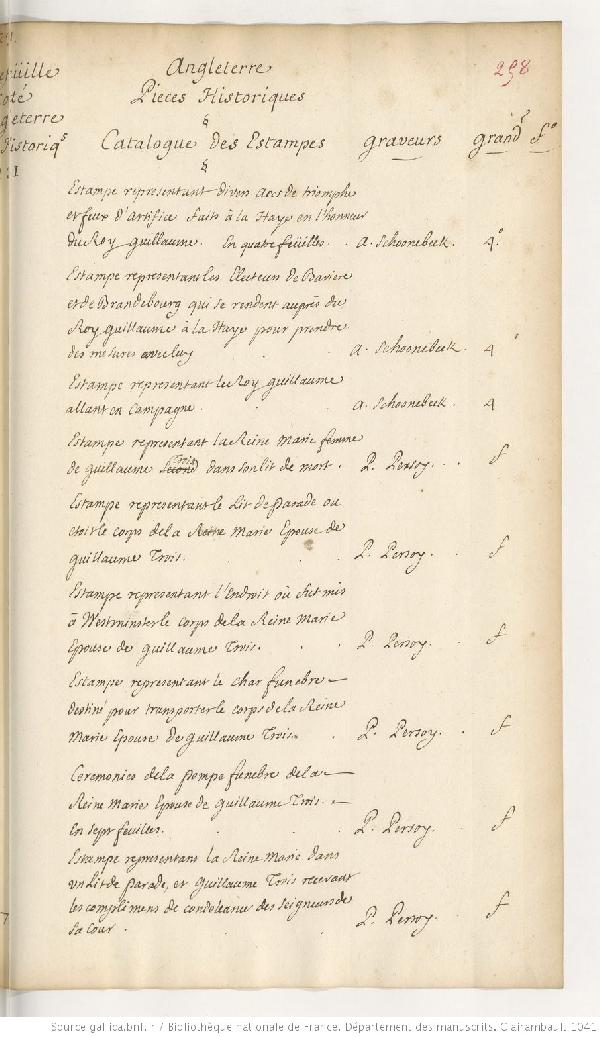 Angleterre
298
Pieces Historiques
§
Catalogue des Estampes graveurs grand.r f.o
§
Estampe representant divers Arcs de triomphe
et feux d'Artifice faits à la Haye en l'honneur
du Roy guillaume. En quatre feüilles. A. Schoonebeek. 4.o
Estampe representant les Electeurs de Baviere
et de Brandebourg qui se rendent auprés du
Roy guillaume à la Haye pour prendre
des mesures avec luy A. Schoonebeek. 4
Estampe representant le Roy guillaume
allant en Campagne. A. Schoonebeek. 4
Estampe representant la Reine Marie femme
de guillaume Second Trois dans son lit de mort. P. Persoy. f
Estampe representant le Lit de parade ou
etoit le corps de la Reine Marie Epouse de
guillaume Trois. P. Persoy. f
Estampe representant l'Endroit où fut mis
à Westminster le corps de la Reine Marie
Epouse de guillaume Trois. P. Persoy. f
Estampe representant le char funebre
destiné pour transporter le corps de la Reine
Marie Epouse de guillaume Trois. P. Persoy. f
Ceremonies de la pompe funebre de la
Reine Marie Epouse de guillaume Trois.
En sept feuilles. P. Persoy. f
Estampe representant la Reine Marie dans
un Lit de parade, et guillaume Trois recevant
les complimens de condoleance des Seigneurs de
sa Cour. P. Persoy. f
Source gallica.bnf.fr / Bibliothèque nationale de France. Département des manuscrits. Clairambault 1041